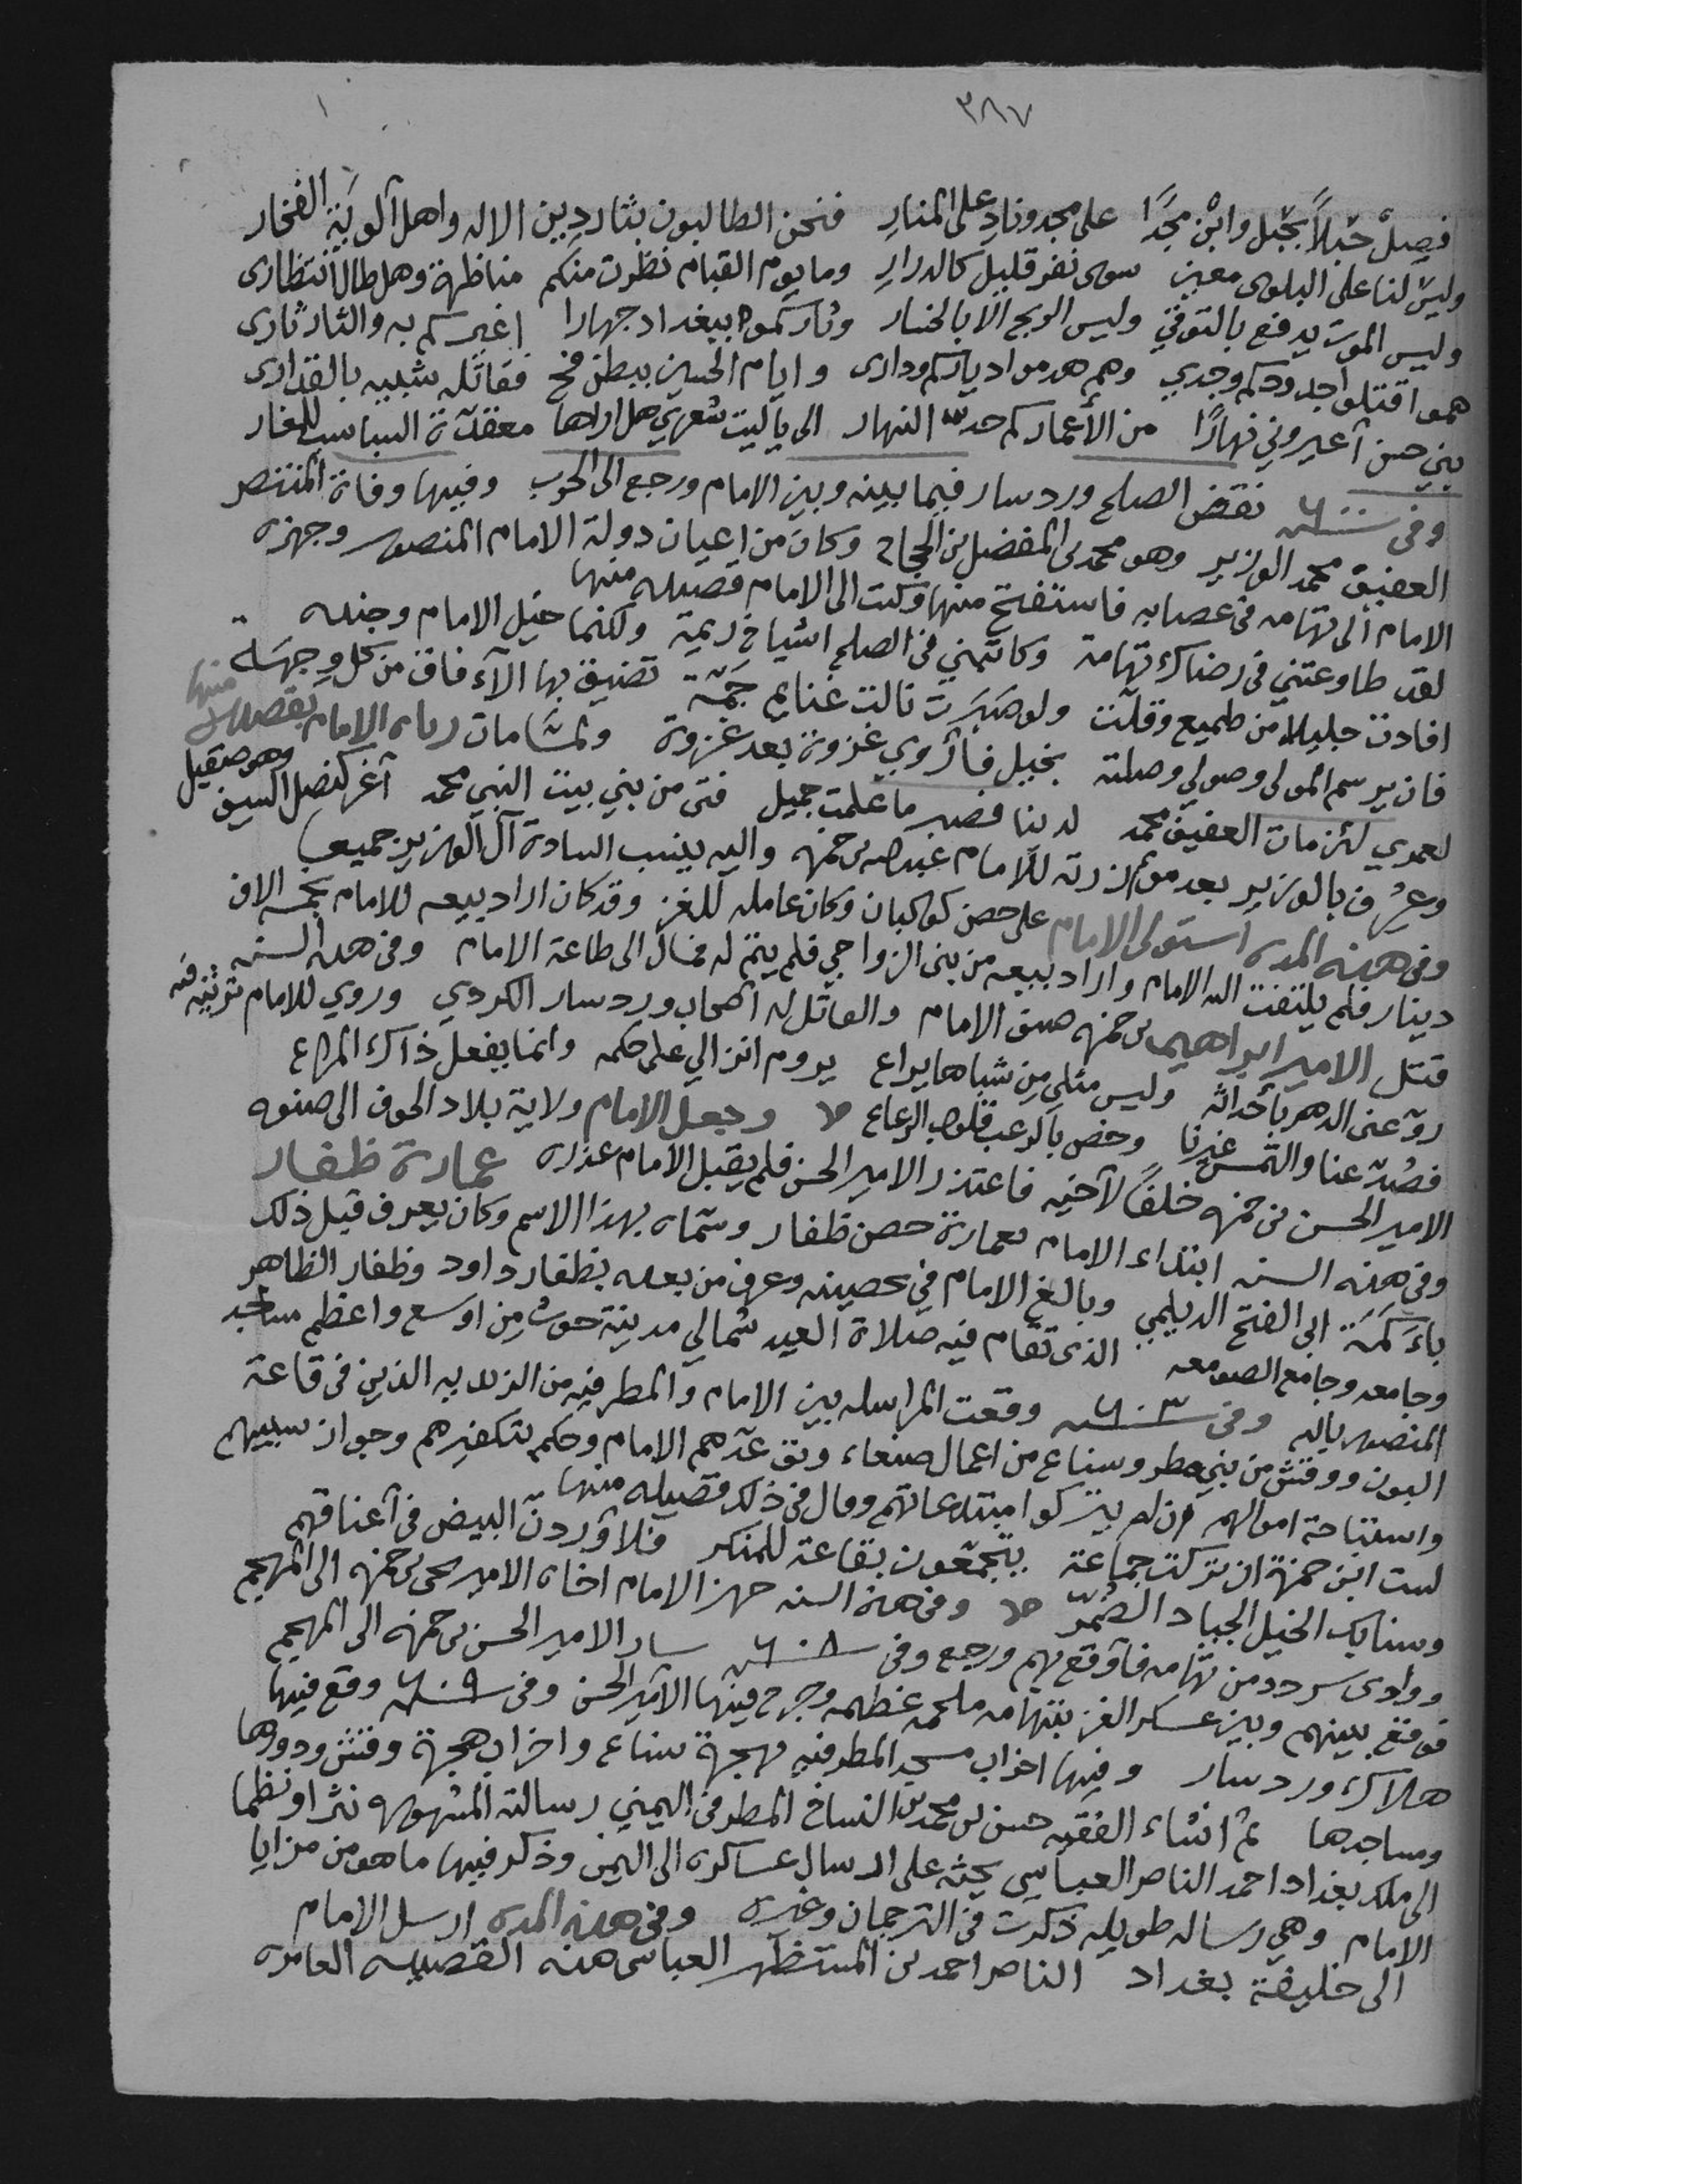 ٣٨٧
١
فصِلْ حَبْلاً بحَبْل وابْن مجَدًا على مجد ونادِ على المنارِ فنحن الطالبون بثار دِين الاله واهل ألويَةِ الفخار
وليس لنا على البلوى معين سوى نفر قليل كالدرارِ وما يوم القيام نظرت منكم مناظرة وهل طال انتظارى
وليس الموت يدفع بالتوقّي وليس الربح الا بالخسار وثاركموا ببغداد جهارا اغيركم به والثار ثارى
همو اقتلوا جدودكم وجدي وهم هدموا دياركم ودارى وايام الحسين ببطن فخ فقاتله شبيه بالقدارى
بني حسن أعيروني نهارًا من الأعمار كم حدث النهار الى ياليت شعري هل اراها معقدة السباسب للمغار
وفى سنة ٦٠٠ نقض الصلح وردسار فيما بينه وبين الامام ورجع الى الحرب وفيها وفاة المنتصر
العفيف محمد الوزير وهو محمد بن المفضل بن الحجاج وكان من اعيان دولة الامام المنصور وجهزه
الامام الى تهامه فى عصابه فاستفتح منها وكتب الى الامام قصيده منها
لقد طاوعتني فى رضاك تهامة وكاتمني فى الصلح اشياخ ريمة ولكنما خيل الامام وجنده
افادت جليلا من طميع وقلّت ولو صَبَرت نالت غنايم جَمّة تضيق بها الآفاق من كل وجهة
فان يرسم المولى وصولي وصلته بخيل فأزوي غزوة بعد غزوة ولما مات رثاه الامام بقصيده منها
لعمري لئن مات العفيف محمد لدينا فصبر ما علمت جميل فتى من بني بيت النبي محمد أغر كنصل السيف وهو صقيل
وعرف بالوزير بعد موازرته للامام عبدالله بن حمزه واليه ينسب السادة آل الوزير جميعا
وفى هذه المده استولى الامام على حصن كوكبان وكان عامله للغز وقد كان اراد بيعه للامام بخمسة الاف
دينار فلم يلتفت اليه الامام واراد بيعه من بنى الزواحي فلم يتم له فمال الى طاعة الامام وفى هذه السنه
قتل الامير ابراهيم بن حمزه صنو الامام والقاتل له اصحاب وردسار الكردي وروي للامام مرثيه فيه
روّعنى الدهر بأحداثه وليس مثلي من شباها يراع يروم انزالي على حكمه وانما يفعل ذاك اليراع
فصُدّ عنا والتمس غيرنا وخص بالرعب قلوب الرعاع وجعل الامام ولاية بلاد الجوف الى صنوه
الامير الحسن بن حمزه خلفًا لأخيه فاعتذر الامير الحسن فلم يقبل الامام عذره عمارة ظفار
وفى هذه السنه ابتداء الامام بعمارة حصن ظفار وسمّاه بهذا الاسم وكان يعرف قبل ذلك
باءَكَمَة ابى الفتح الديلمي وبالغ الامام فى تحصينه وعرف من بعده بظفار داود وظفار الظاهر
وجامعه وجامع الصومعه الذى تقام فيه صلاة العيد شمالي مدينة حوث من اوسع واعظم مساجد
المنصور بالله وفى سنة ٦٠٣ وقعت المراسله بين الامام والمطرفيه من الزيديه الذين فى قاعة
البون ووقش من بني مطر وسناع من اعمال صنعاء وتوعدهم الامام وحكم بتكفيرهم وجواز سبيهم
واستباحة اموالهم ان لم يتركوا مبتدعاتهم وقال فى ذلك قصيده منها
لست ابن حمزة ان تركت جماعة يتجمعون بقاعة للمنكر فلأوردن البيض فى أعناقهم
وسنابك الخيل الجياد الضُمّر وفى هذه السنه جهز الامام اخاه الامير يحى بن حمزه الى المهجم
ووادى سردد من تهامه فأوقع بهم ورجع وفى سنة ٦٠٨ سار الامير الحسن بن حمزه الى المهجم
فوقع بينهم وبين عسكر الغز بتهامه ملحمه عظيمه وجرح فيها الامير الحسن وفى سنة ٦٠٩ وقع فيها
هلاك وردسار وفيها اخراب مسجد المطرفيه بهجرة سناع واخراب هجرة وقش ودورها
ومساجدها ثم انشاء الفقيه حسن بن محمد النساخ المطرفى اليمني رسالته المشهوره نثرا ونظما
الى ملك بغداد احمد الناصر العباسي يحثه على ارسال عساكره الى اليمن وذكر فيها ما هو من مزايا
الامام وهي رساله طويله ذكرت فى الترجمان وغيره وفى هذه المده ارسل الامام
الى خليفة بغداد الناصر احمد بن المستظهر العباسى هذه القصيده العامره